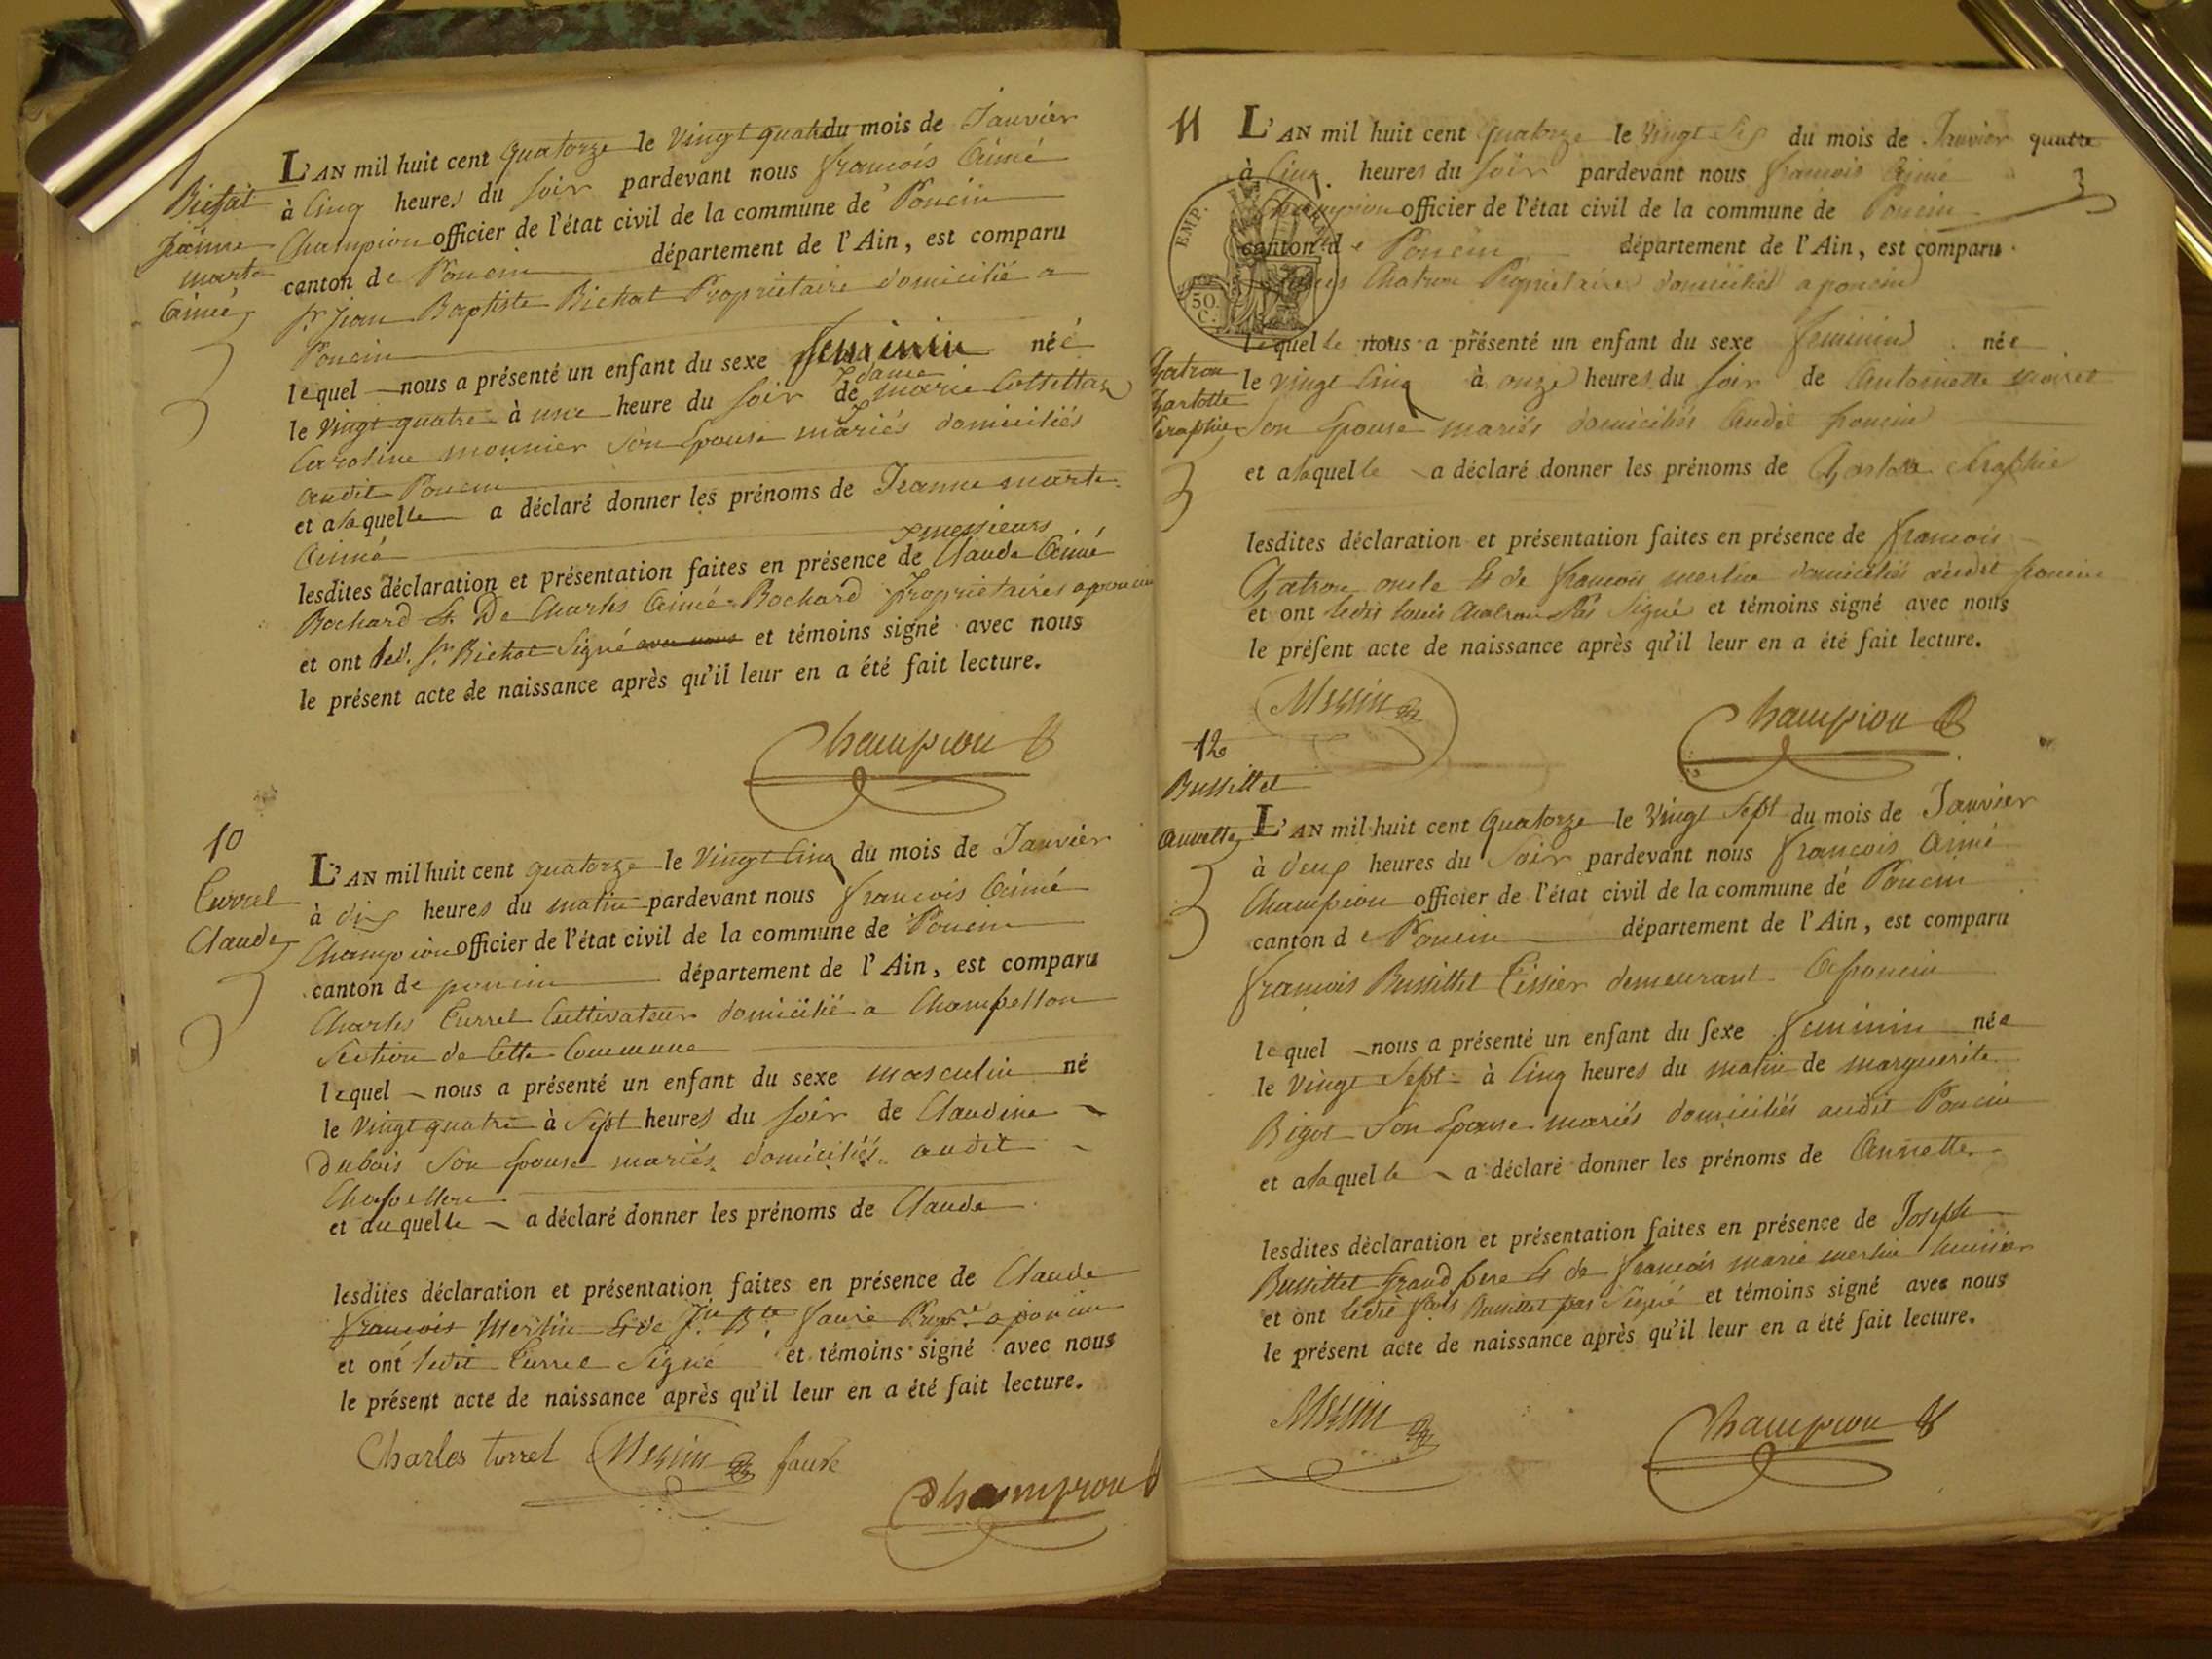 Bichat
Jeanne
marte
Aimé
L'AN mil huit cent quatorze le vingt quatre du mois de Janvier
à cinq heures du soir pardevant nous françois Aimé
Champion officier de l'état civil de la commune de Poncin
canton de Poncin département de l'Ain, est comparu
Sr Jean Baptiste Bichat Propriétaire domicilié a
Poncin
lequel nous a présenté un enfant du sexe feminin née
dame
le vingt quatre à une heure du soir de marie
Caroline monnier son Epouse mariés domiciliés
audit Poncin
et a laquelle a déclaré donner les prénoms de Jeanne marte
Aimé
messieurs
lesdites déclaration et présentation faites en présence de Claude Aimé
Bochard & De Charles Aimé Bochard Propriétaires a poncin
et ont led. Sr Bichat Signé avec nous et témoins signé avec nous
le présent acte de naissance après qu'il leur en a été fait lecture.
Champion
10
Turrel
Claude
L'AN mil huit cent quatorze le Vingt Cinq du mois de Janvier
à dix heures du matin pardevant nous françois Aimé
Champion officier de l'état civil de la commune de Poncin
canton de poncin département de l'Ain, est comparu
Charles Turrel Cultivateur domicilié a
Section de Cette Commune
lequel nous a présenté un enfant du sexe masculin né
le Vingt quatre à Sept heures du soir de Claudine
dubois Son Epouse mariés domiciliés audit
et au quelle a déclaré donner les prénoms de Claude
lesdites déclaration et présentation faites en présence de Claude
françois Merlin & de Jn Bte faure Propre a poncin
et ont ledit Turrel Signé et témoins signé avec nous
le présent acte de naissance après qu'il leur en a été fait lecture.
Charles turrel Merlin faure
Champion
11
L'AN mil huit cent quatorze le vingt Six du mois de Janvier quatre
à Cinq heures du Soir pardevant nous françois Aimé
Champion officier de l'état civil de la commune de Poncin
canton de Poncin département de l'Ain, est comparu
Louis Chatron Propriétaire domicilié a poncin
EMP.
50
C.
lequel le nous a présenté un enfant du sexe feminin née
le vingt Cinq à onze heures du soir de Antoinette
Son Epouse mariés domiciliés audit poncin
et a laquelle a déclaré donner les prénoms de
lesdites déclaration et présentation faites en présence de françois
oncle & de françois merlin domiciliés audit poncin
et ont ledit Louis Chatron Pas Signé et témoins signé avec nous
le présent acte de naissance après qu'il leur en a été fait lecture.
Merlin
Champion
12
Bussillet
Annette
L'AN mil huit cent quatorze le Vingt Sept du mois de Janvier
à deux heures du Soir pardevant nous françois Aimé
Champion officier de l'état civil de la commune de Poncin
canton de Poncin département de l'Ain, est comparu
françois Bussillet Tissier demeurant a poncin
lequel nous a présenté un enfant du sexe feminin née
le Vingt Sept à Cinq heures du matin de marguerite
Bigot Son Epouse mariés domiciliés audit Poncin
et a laquelle a déclaré donner les prénoms de Annette
lesdites déclaration et présentation faites en présence de Joseph
Bussillet grand pere & de françois marie merlin huissier
et ont ledit fcois Bussillet pas Signé et témoins signé avec nous
le présent acte de naissance après qu'il leur en a été fait lecture.
Merlin
Champion